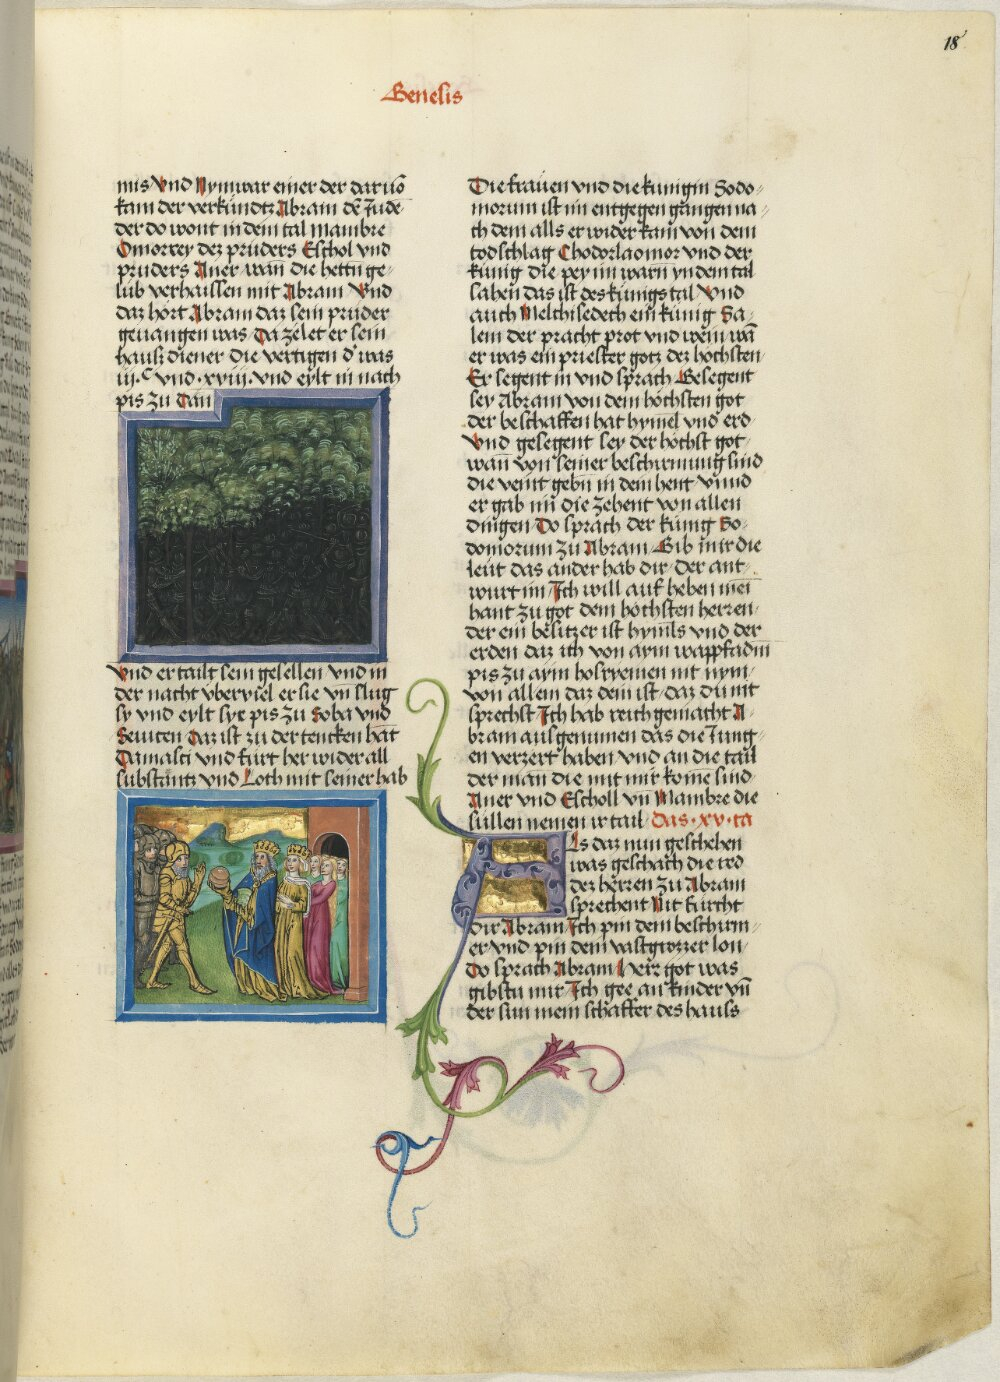 18
Genesis
mis Vnd Nymwar einer der daruō
kam der verkundtz Abram dē Jude
der do wont in dem tal Mambre
Omorrey dez pruders Eschol vnd
pruders Aner wañ die hettn ge
lub verhaissen mit Abram Vnd
daz hort Abram daz sein pruder
geuangen was Da zelet er sein
hausz diener die vertigen d' was
iij.c vnd .xviij. vnd eylt in nach
pis zu Dan
Vnd er tailt sein gesellen vnd in
der nacht vberviel er sie vn slug
sy vnd eylt sye pis zu Soba vnd
Feniten Daz ist zu der tencken hat
Damasci vnd furt her wider all
substantz vnd Loth mit seiner hab
Die frauen vnd die kunigin Sodo
morum ist im entgegen gangen na
ch dem alls er wider kam von dem
todschlag Chodorlaomor vnd der
kunig die pey im warn yn dem tal
saben das ist des kunigs tal Vnd
auch Melchisedech ein kunig Sa
lem der pracht prot vnd wein wañ
er was ein priester gotz dez hochsten
Er segent in vnd sprach Gesegent
sey Abram von dem hochsten got
der beschaffen hat hymel vnd erd
Vnd gesegent sey der hochst got
wañ von seiner beschirmung sind
die veint gebn in dem hent Vnnd
er gab im die zehent von allen
dingen Do sprach der kunig So
domorum zu Abram Gib mir die
leut das ander hab dir Der ant
wurt im Ich will auf heben mein
hant zu got dem hochsten herren
der ein besitzer ist hymls vnd der
erden daz ich von aym wappfadm
pis zu aym hosryemen nit nym
von allem daz dein ist daz du nit
sprechst Ich hab reich gemacht A
bram ausgenumen das die Jung
en verzert haben vnd an die tail
der man die mit mir kome sind
Aner vnd Escholl vn Mambre die
sullen nemen ir tail das .xv. ca
Als daz nun geschehen
was geschach die red
dez herren zu Abram
sprechent Nit furcht
dir Abram Ich pin dein beschirm
er vnd pin dein vast grozzer lon
Do sprach Abram Herr got was
gibstu mir Ich gee an kinder vn
der sun mein schaffer des hauss